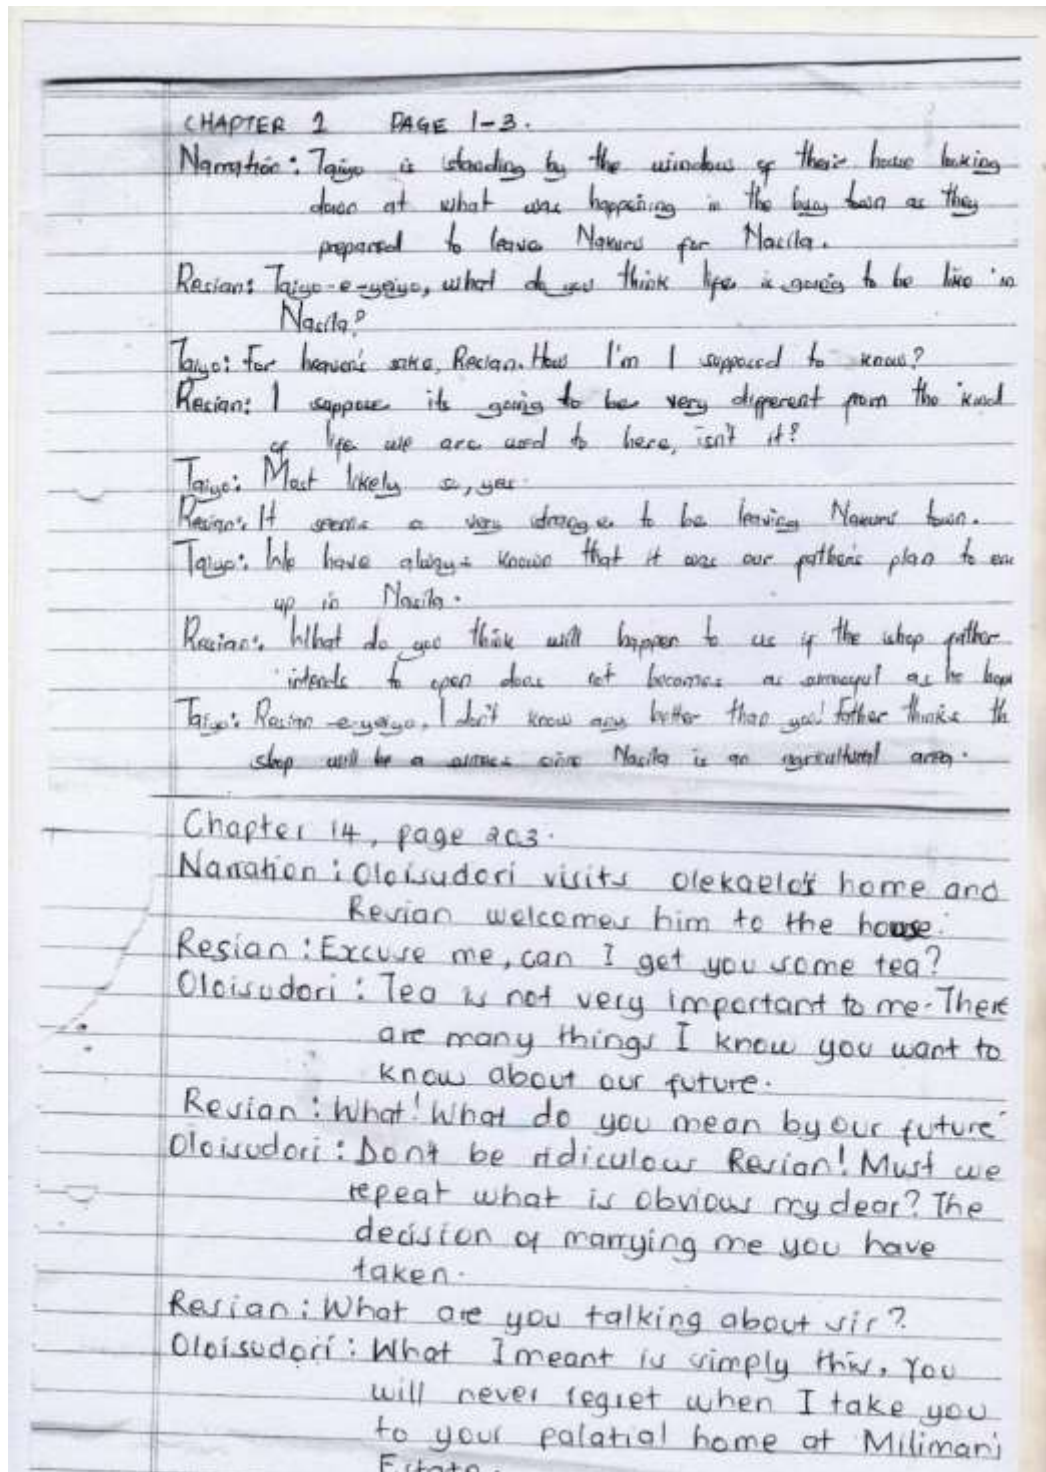 CHAPTER 1 PAGE 1-3.
Narration: Taiyo is standing by the window of their house looking
down at what was happening in the busy town as they
prepared to leave Nakuru for Nasila.
Resian: Taiyo-e-yeiyo, what do you think life is going to be like in
Nasila?
Taiyo: For heaven's sake, Resian. How I'm I supposed to know?
Resian: I suppose its going to be very different from the kind
of life we are used to here, isn't it?
Taiyo: Most likely so, yes.
Resian: It seems a very strange to be leaving Nakuru town.
Taiyo: We have always known that it was our father's plan to
up in Nasila.
Resian: What do you think will happen to us if the shop father
intends to open does not becomes as successful as he hopes
Taiyo: Resian-e-yeiyo, I don't know any better than you! Father thinks th
shop will be a success since Nasila is an agricultural area.
Chapter 14, page 203.
Narration: Oloisudori visits Olekaelo's home and
Resian welcomes him to the house.
Resian: Excuse me, can I get you some tea?
Oloisudori: Tea is not very important to me. There
are many things I know you want to
know about our future.
Resian: What! What do you mean by our future
Oloisudori: Don't be ridiculous Resian! Must we
repeat what is obvious my dear? The
decision of marrying me you have
taken.
Resian: What are you talking about sir?
Oloisudori: What I meant is simply this. You
will never regret when I take you
to your palatial home at Milimani
Estate.